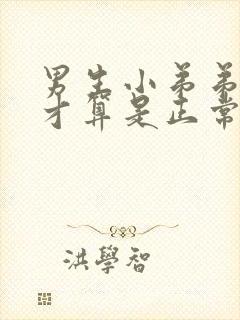 男生小弟弟
才算是正常
洪學智